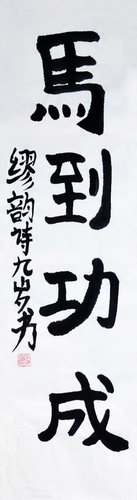 馬到功成
缪韵时九岁书